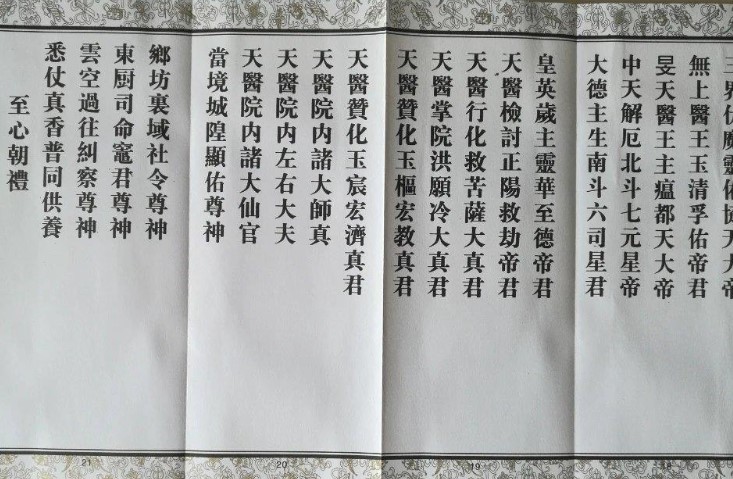 三界伏魔靈佑協天大帝
無上醫王玉清孚佑帝君
旻天醫王主瘟都天大帝
中天解厄北斗七元星帝
大德主生南斗六司星君
皇英歲主靈華至德帝君
天醫檢討正陽救劫帝君
天醫行化救苦薩大真君
天醫掌院洪願冷大真君
天醫贊化玉樞宏教真君
天醫贊化玉宸宏濟真君
天醫院内諸大師真
天醫院内左右大夫
天醫院内諸大仙官
當境城隍顯佑尊神
鄉坊裏域社令尊神
東厨司命竈君尊神
雲空過往糾察尊神
悉仗真香普同供養
至心朝禮
19
20
21